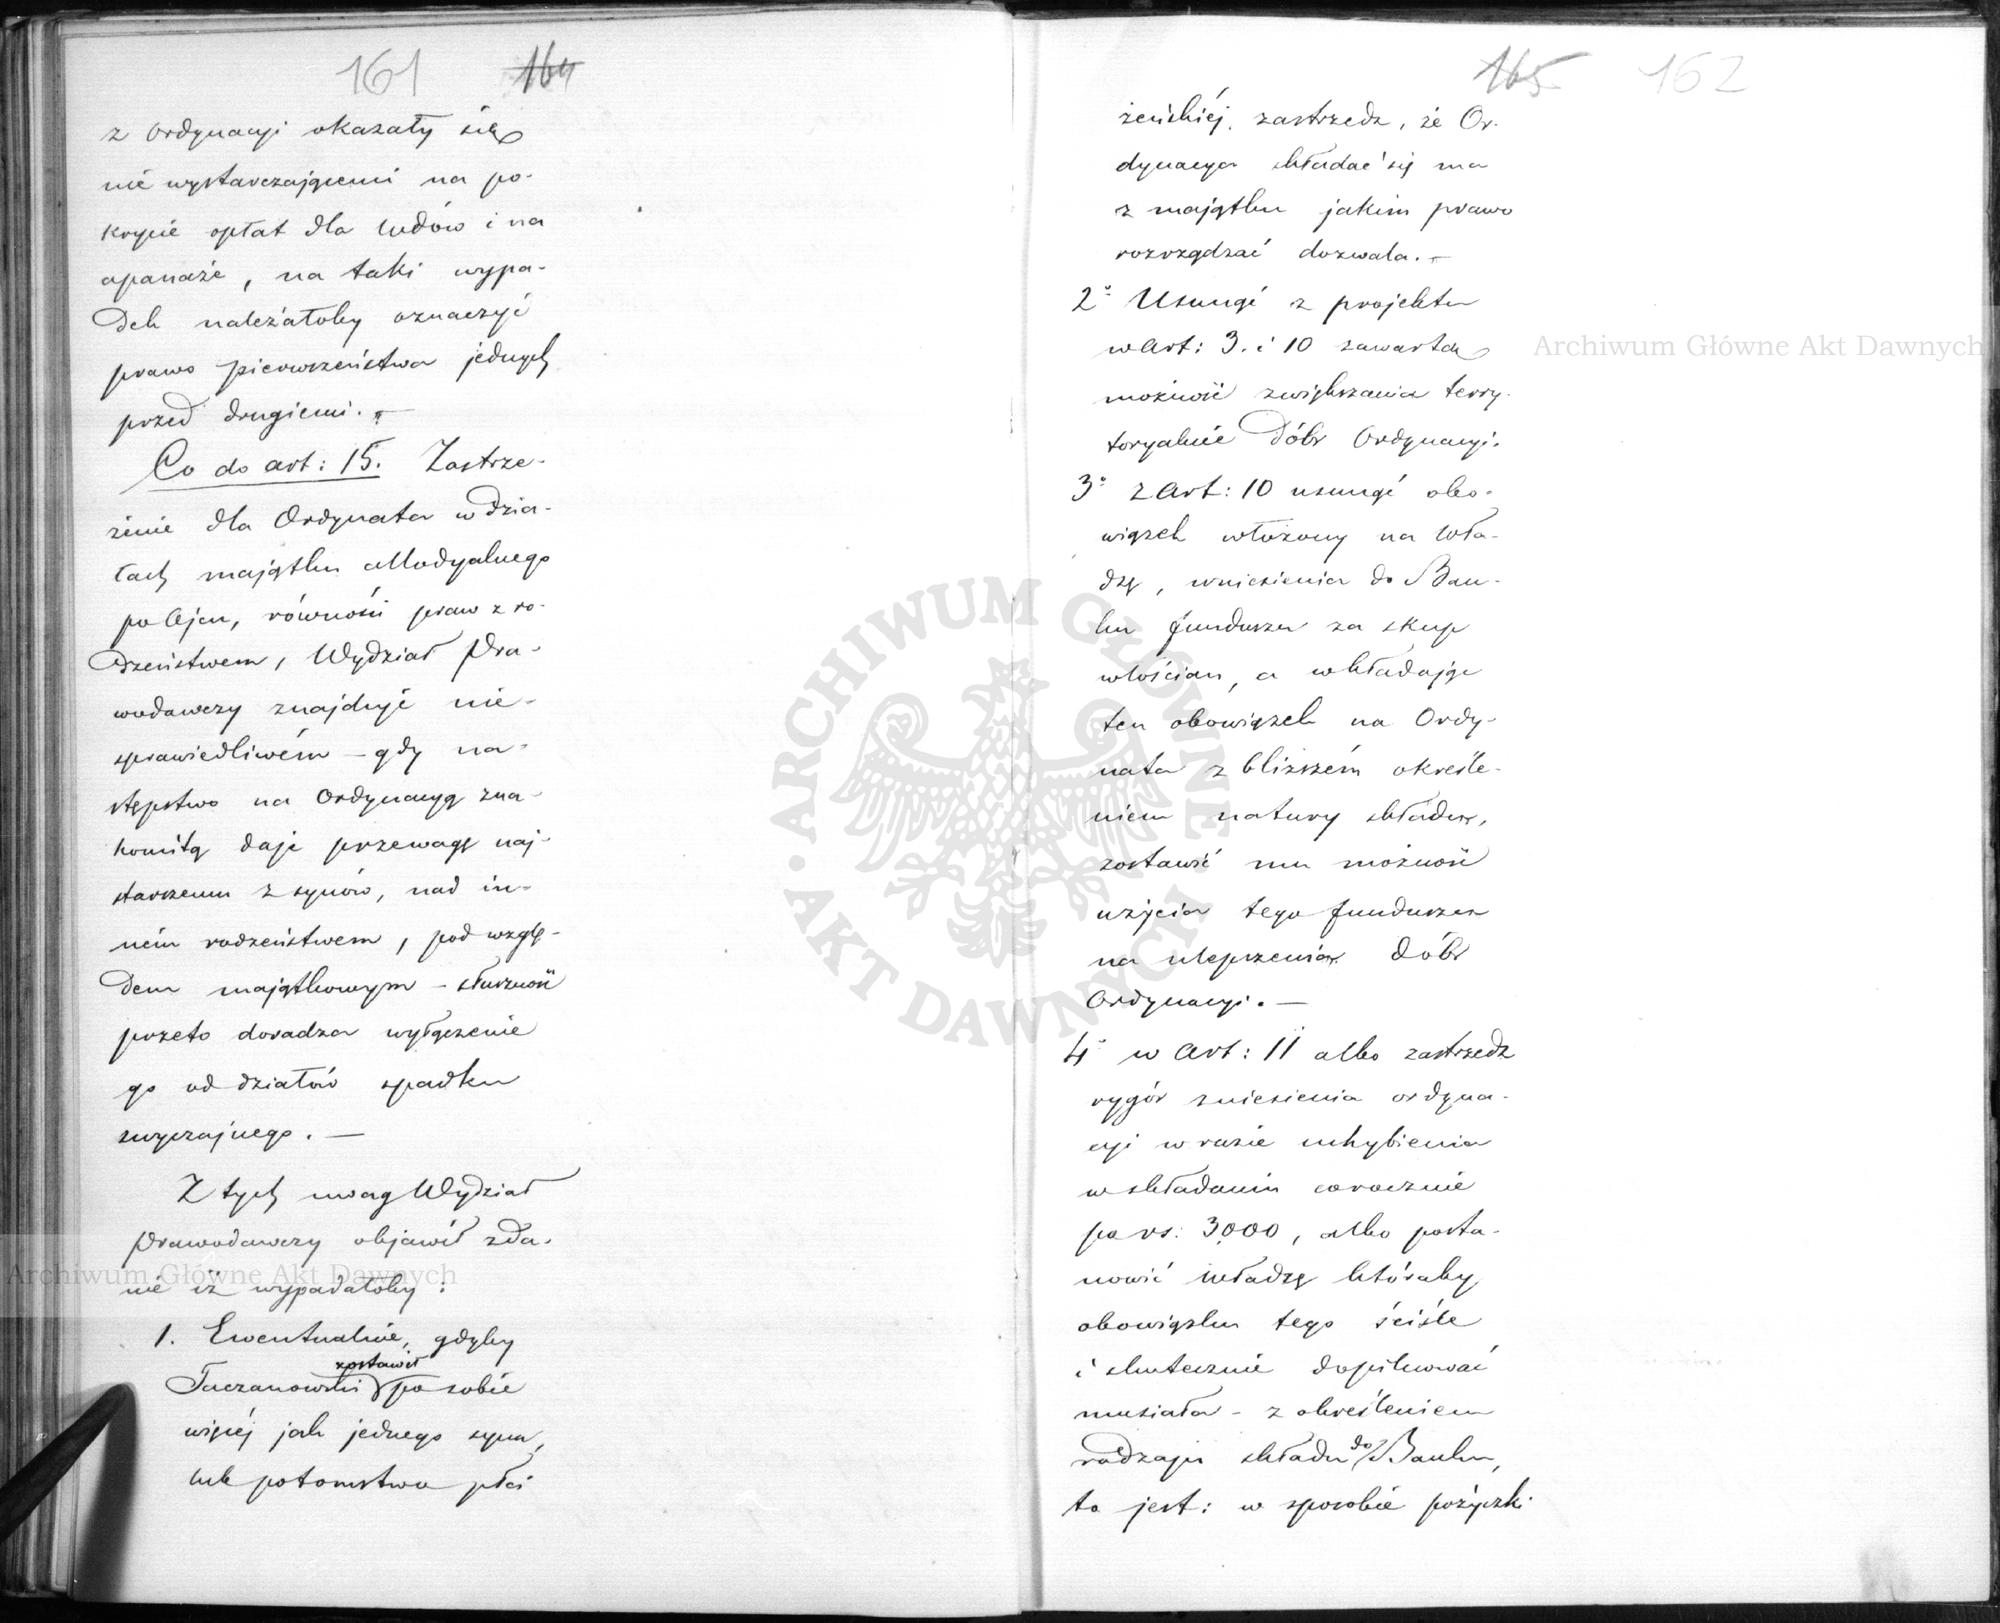 161 164
z Ordynacyi okazały się
nie wystarczającemi na po-
krycie opłat dla wdów i na
apanaże, na taki wypa-
dek należałoby oznaczyć
prawo pierwszeństwa jednych
przed drugiemi. —
Co do art: 15. Zastrze-
żenie dla Ordynata w dzia-
łach majątku allodyalnego
po Ojcu, równości praw z ro-
dzeństwem, Wydział Pra-
wodawczy znajduje nie-
sprawiedliwém – gdy na-
stępstwo na Ordynacyą zna-
komitą daje przewagę naj-
starszemu z synów, nad in-
ném rodzeństwem, pod wzglę-
dem majątkowym – słuszność
przeto doradza wyłączenie
go od działów spadku
zwyczajnego. —
Z tych uwag Wydział
Prawodawczy objawił zda-
nie iż wypadałoby:
1. Ewentualnie, gdyby
zostawił
Taczanowski po sobie
więcéj jak jednego syna,
lub potomstwo płci
165 162
żeńskiéj, zastrzedz, że Or-
dynacya składać się ma
z majątku jakim prawo
rozrządzać dozwala. —
2° Usunąć z projektu
w Art: 3. i 10 zawartą
możność zwiększania terry-
toryalnie dóbr Ordynacyi.
3° z Art: 10 usunąć obo-
wiązek włożony na Wła-
dzę, wniesienia do Ban-
ku funduszu za skup
włościan, a wkładając
ten obowiązek na Ordy-
nata z bliższém określe-
niem natury składu,
zostawić mu możność
użycia tego funduszu
na ulepszenia dóbr
Ordynacyi. —
4° w Art: 11 albo zastrzedz
rygór zniesienia ordyna-
cyi w razie uchybienia
w składaniu corocznie
po rs: 3,000, albo posta-
nowić władzę któraby
obowiązku tego ściśle
i skutecznie dopilnować
musiała – z określeniem
rodzaju składu do Banku,
to jest: w sposobie pożyczki
Archiwum Główne Akt Dawnych
Archiwum Główne Akt Dawnych
ARCHIWUM GŁÓWNE AKT DAWNYCH